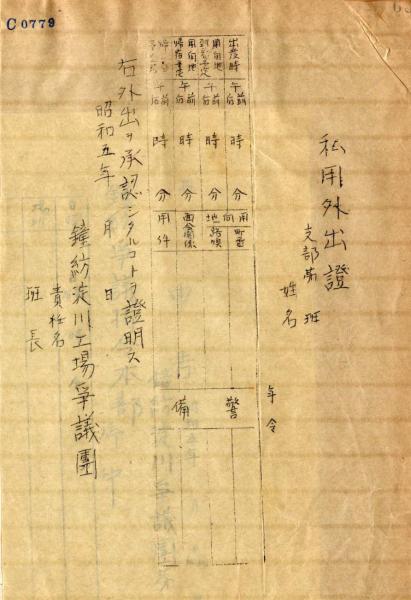 C0779
私用外出證
支部第 班
姓名
年令
出発時 午前 午后 時 分
用向地 午前 午后 時 分
用向地 午前 午后 時 分
午前 午后 時 分
用向地
町番
路順
面会関係
用件
警備
右外出ヲ承認シタルコトヲ證明ス
昭和五年 月 日
鐘紡淀川工場爭議團
責任名
班長